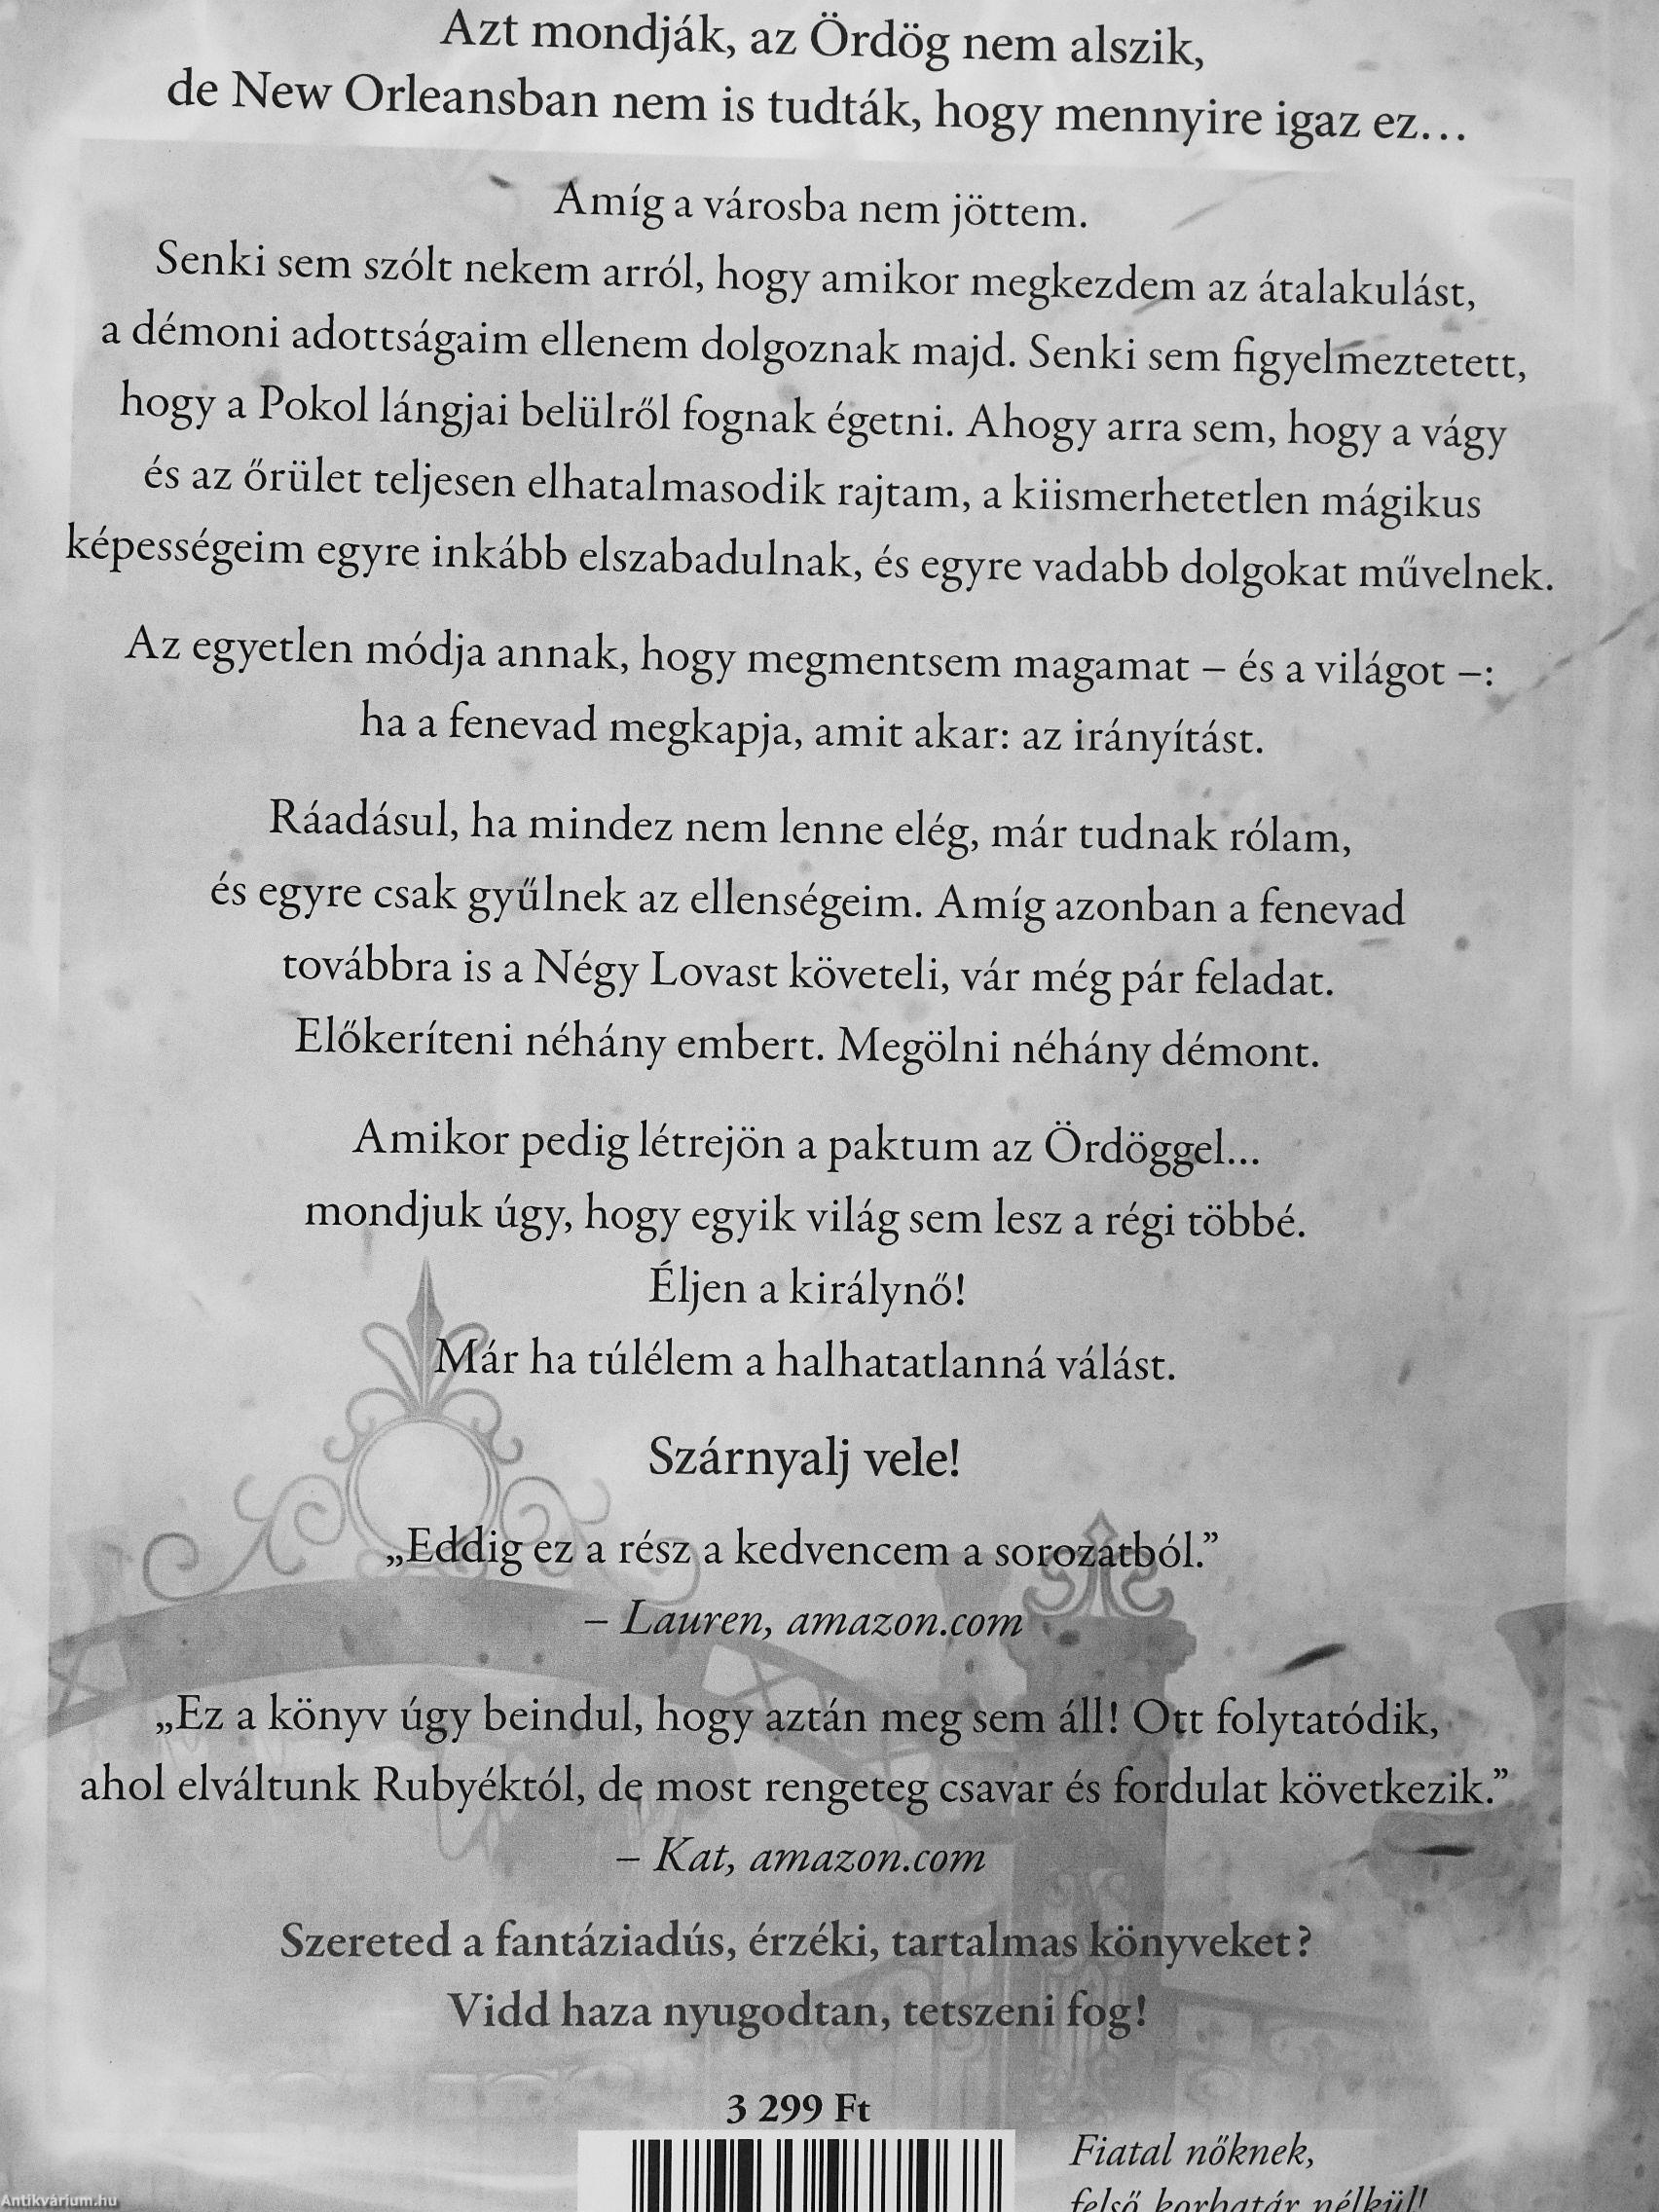 Azt mondják, az Ördög nem alszik,
de New Orleansban nem is tudták, hogy mennyire igaz ez…
Amíg a városba nem jöttem.
Senki sem szólt nekem arról, hogy amikor megkezdem az átalakulást,
a démoni adottságaim ellenem dolgoznak majd. Senki sem figyelmeztetett,
hogy a Pokol lángjai belülről fognak égetni. Ahogy arra sem, hogy a vágy
és az őrület teljesen elhatalmasodik rajtam, a kiismerhetetlen mágikus
képességeim egyre inkább elszabadulnak, és egyre vadabb dolgokat művelnek.
Az egyetlen módja annak, hogy megmentsem magamat – és a világot –:
ha a fenevad megkapja, amit akar: az irányítást.
Ráadásul, ha mindez nem lenne elég, már tudnak rólam,
és egyre csak gyűlnek az ellenségeim. Amíg azonban a fenevad
továbbra is a Négy Lovast követeli, vár még pár feladat.
Előkeríteni néhány embert. Megölni néhány démont.
Amikor pedig létrejön a paktum az Ördöggel...
mondjuk úgy, hogy egyik világ sem lesz a régi többé.
Éljen a királynő!
Már ha túlélem a halhatatlanná válást.
Szárnyalj vele!
„Eddig ez a rész a kedvencem a sorozatból.”
– Lauren, amazon.com
„Ez a könyv úgy beindul, hogy aztán meg sem áll! Ott folytatódik,
ahol elváltunk Rubyéktól, de most rengeteg csavar és fordulat következik.”
– Kat, amazon.com
Szereted a fantáziadús, érzéki, tartalmas könyveket?
Vidd haza nyugodtan, tetszeni fog!
3 299 Ft
Fiatal nőknek,
felső korhatár nélkül!
Antikvárium.hu